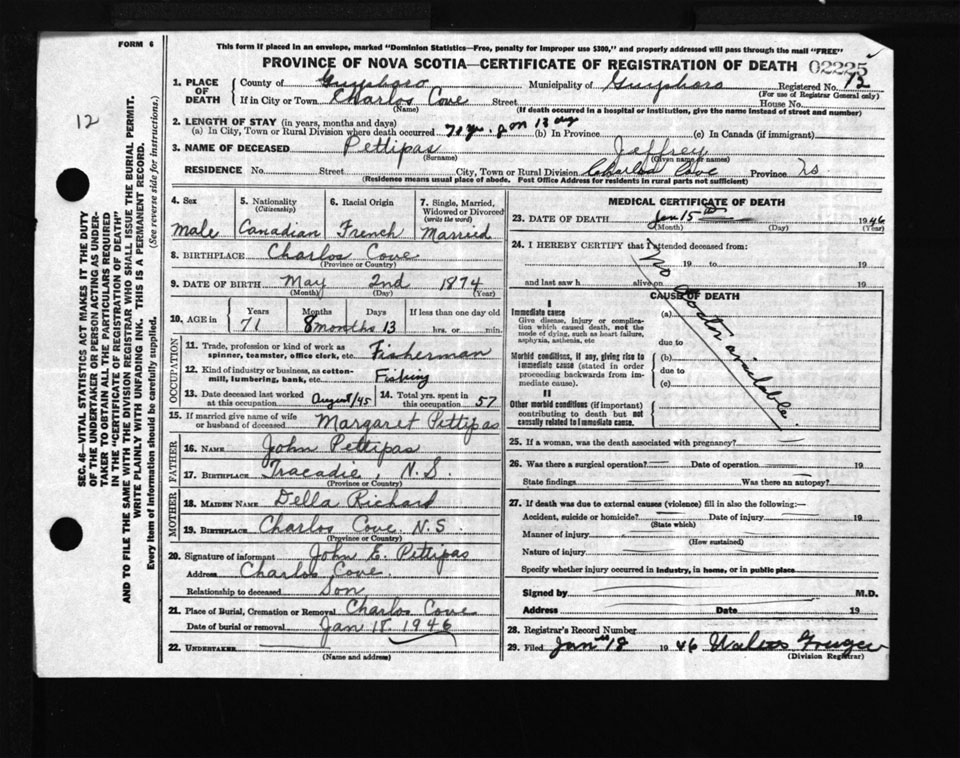 FORM 6
This form if placed in an envelope, marked "Dominion Statistics—Free, penalty for improper use $300," and properly addressed will pass through the mail "FREE"
PROVINCE OF NOVA SCOTIA—CERTIFICATE OF REGISTRATION OF DEATH
02225
1. PLACE OF DEATH County of Guysboro Municipality of Guysboro Registered No. 12
(For use of Registrar General only)
If in City or Town Charlos Cove Street House No.
(Name) (If death occurred in a hospital or institution, give the name instead of street and number)
2. LENGTH OF STAY (in years, months and days)
(a) In City, Town or Rural Division where death occurred 71 yr. 8 mon 13 dy (b) In Province (c) In Canada (if immigrant)
3. NAME OF DECEASED Pettipas Jaffrey
(Surname) (Given name or names)
RESIDENCE No. Street City, Town or Rural Division Charlos Cove Province NS
(Residence means usual place of abode. Post Office Address for residents in rural parts not sufficient)
4. Sex 5. Nationality 6. Racial Origin 7. Single, Married, Widowed or Divorced
(Citizenship) (write the word)
Male Canadian French Married
8. BIRTHPLACE Charlos Cove
(Province or Country)
9. DATE OF BIRTH May 2nd 1874
(Month) (Day) (Year)
10. AGE in Years Months Days If less than one day old
71 8 months 13 hrs. or min.
OCCUPATION
11. Trade, profession or kind of work as spinner, teamster, office clerk, etc. Fisherman
12. Kind of industry or business, as cotton-mill, lumbering, bank, etc. Fishing
13. Date deceased last worked at this occupation August/45 14. Total yrs. spent in this occupation 57
15. If married give name of wife or husband of deceased Margaret Pettipas
FATHER
16. Name John Pettipas
17. Birthplace Tracadie, N.S.
(Province or Country)
MOTHER
18. Maiden Name Della Richard
19. Birthplace Charlos Cove. N.S
(Province or Country)
20. Signature of informant John E. Pettipas
Address Charlos Cove.
Relationship to deceased Son
21. Place of Burial, Cremation or Removal Charlos Cove
Date of burial or removal Jan 18. 1946
22. UNDERTAKER
(Name and address)
MEDICAL CERTIFICATE OF DEATH
23. DATE OF DEATH Jan 15th 1946
(Month) (Day) (Year)
24. I HEREBY CERTIFY that I attended deceased from:
19 to 19
and last saw h alive on 19
No Doctor available
CAUSE OF DEATH
I
Immediate cause (a)
Give disease, injury or complication which caused death, not the mode of dying, such as heart failure, asphyxia, asthenia, etc due to
Morbid conditions, if any, giving rise to immediate cause (stated in order proceeding backwards from immediate cause). (b)
due to
(c)
II
Other morbid conditions (if important) contributing to death but not causally related to immediate cause.
25. If a woman, was the death associated with pregnancy?
26. Was there a surgical operation? Date of operation 19
State findings Was there an autopsy?
27. If death was due to external causes (violence) fill in also the following:—
Accident, suicide or homicide? Date of injury 19
(State which)
Manner of injury
(How sustained)
Nature of injury
Specify whether injury occurred in industry, in home, or in public place
Signed by M.D.
Address Date 19
28. Registrar's Record Number
29. Filed Jan 18 1946
(Division Registrar)
12
SEC. 46—VITAL STATISTICS ACT MAKES IT THE DUTY
OF THE UNDERTAKER OR PERSON ACTING AS UNDER-
TAKER TO OBTAIN ALL THE PARTICULARS REQUIRED
IN THE "CERTIFICATE OF REGISTRATION OF DEATH"
AND TO FILE THE SAME WITH THE DIVISION REGISTRAR WHO SHALL ISSUE THE BURIAL PERMIT.
WRITE PLAINLY WITH UNFADING INK. THIS IS A PERMANENT RECORD.
Every item of information should be carefully supplied. (See reverse side for instructions.)